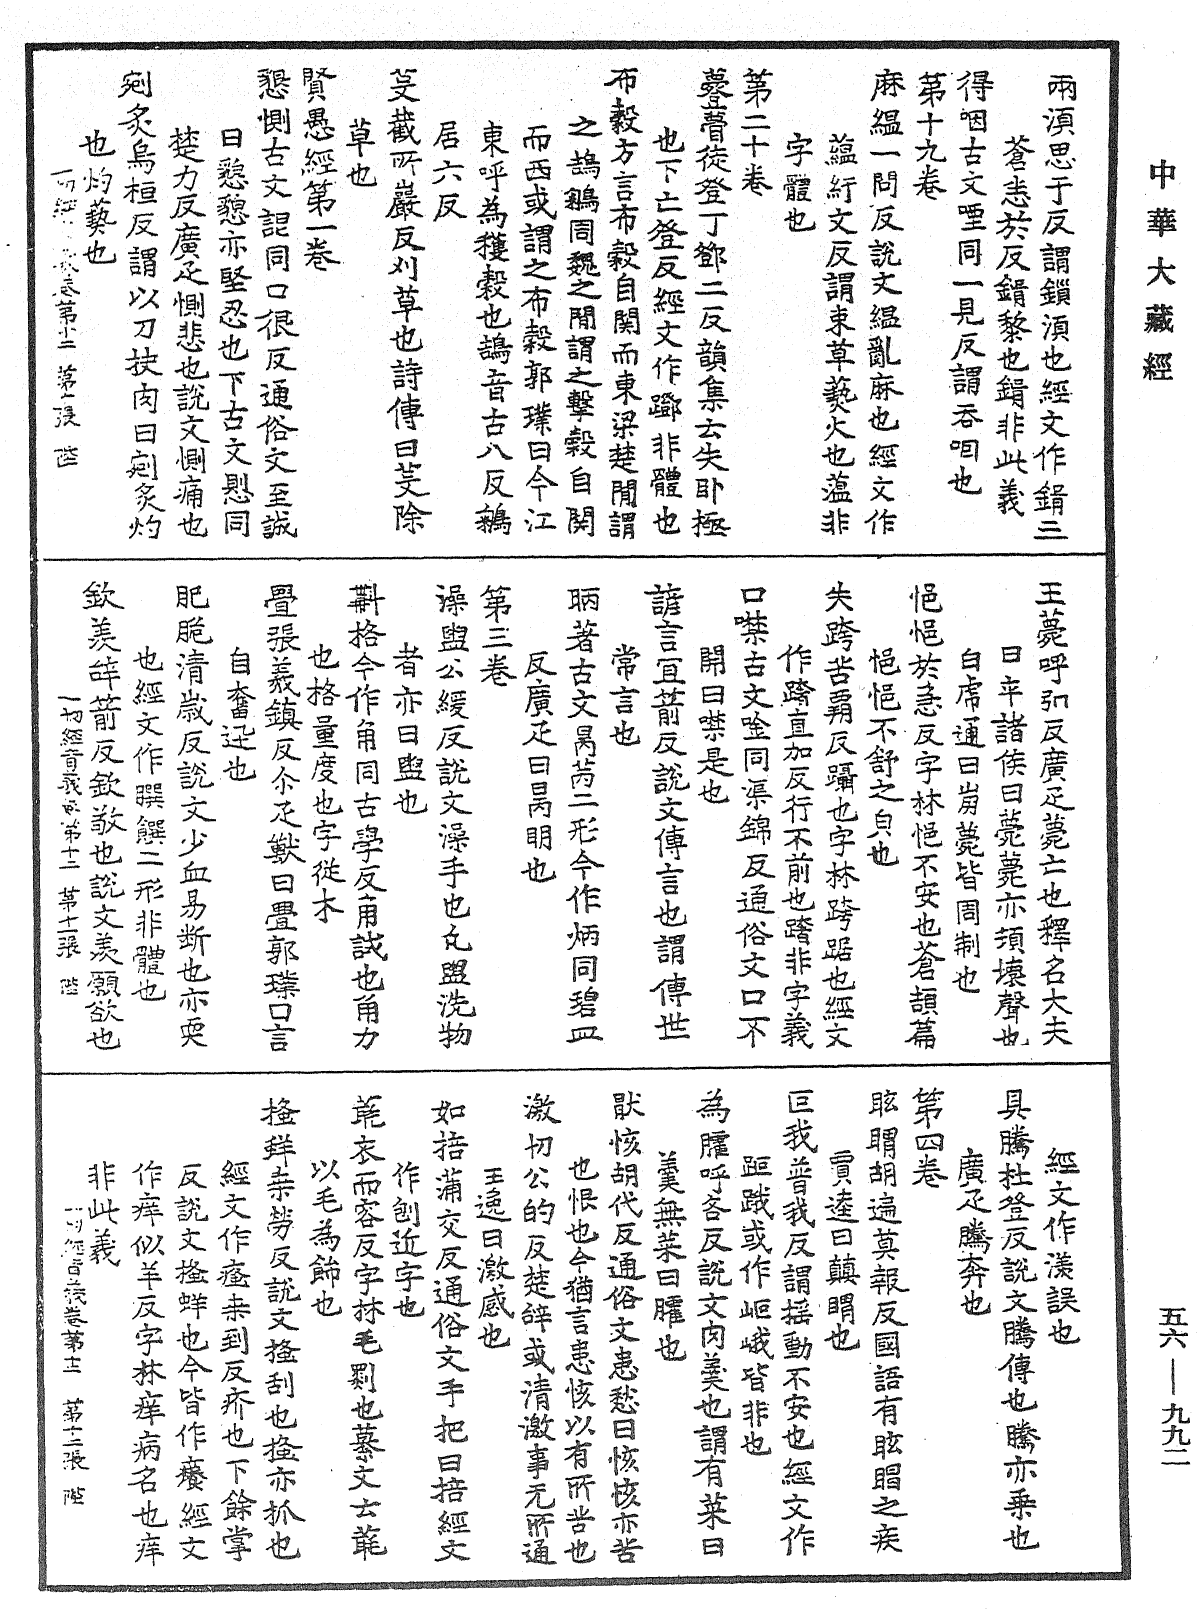 中華大藏經
兩湏思于反謂鎖湏也經文作鍣三
蒼恚於反鍣黎也鍣非此義
得咽古文㗘同一見反謂吞咽也
第十九卷
麻緼一問反說文緼亂麻也經文作
蕰紆文反謂束草爇火也蕰非
字體也
第二十卷
㽅瞢徒登丁鄧二反韻集云失卧極
也下亡登反經文作蹬非體也
布糓方言布糓自関而東梁楚閒謂
之鴶鵴周魏之閒謂之擊糓自関
而西或謂之布糓郭璞曰今江
東呼為穫糓也鴶音古八反鵴
居六反
芟截所巖反刈草也詩傳曰芟除
草也
賢愚經第一卷
懇惻古文詪同口很反通俗文至誠
曰懇懇亦堅忍也下古文㥽同
楚力反廣疋惻悲也說文惻痛也
剜炙烏桓反謂以刀抉肉曰剜炙灼
也灼爇也
卷第十二 第十張 陛
王薨呼弘反廣疋薨亡也釋名大夫
曰卒諸侯曰薨薨亦頽壞聲也
白虎通曰崩薨皆周制也
悒悒於急反字林悒不安也蒼頡篇
悒悒不舒之皃也
失跨苦霸反躡也字林跨踞也經文
作䠧直加反行不前也䠧非字義
口噤古文唫同渠錦反通俗文口不
開曰噤是也
諺言冝箭反說文傳言也謂傳世
常言也
昞著古文昺芮二形今作炳同碧皿
反廣疋曰昺明也
第三卷
澡盥公緩反說文澡手也凡盥洗物
者亦曰盥也
斠格今作角同古學反角試也角力
也格量度也字從木
舋張羲鎮反尒疋獸曰舋郭璞曰言
自奮迅也
肥脆清歲反說文少血易断也亦耎
也經文作䐹饌二形非體也
欽羨辝箭反欽敬也說文羨願欲也
一切經音義卷第十二 第十一張 陛
經文作㳄誤也
具騰杜登反說文騰傳也騰亦乗也
廣疋騰奔也
第四卷
眩瞑胡遍莫報反國語有眩瞑之疾
賈逵曰顛瞑也
叵我普我反謂摇動不安也經文作
距跛或作岠峨皆非也
為臛呼各反說文肉羹也謂有菜曰
羹無菜曰臛也
猒㤥胡代反通俗文患愁曰㤥㤥亦苦
也恨也今猶言患㤥以有所苦也
激切公的反楚辝或清激事无所通
王逸曰激感也
如掊蒲交反通俗文手把曰掊經文
作刨近字也
毦衣而容反字林毛罽也纂文云毦
以毛為飾也
搔𤻊桒勞反說文搔刮也搔亦抓也
經文作瘙桒到反疥也下餘掌
反說文搔蛘也今皆作癢經文
作痒似羊反字林痒病名也痒
非此義
一切經音義卷第十二 第十二張 陛
五六—九九二